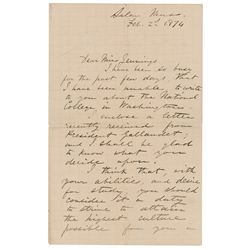 Salem Mass.
Feb. 2d 1874
Dear Miss Jennings
I have been so busy
for the past few days that
I have been unable to write
to you about the National
College in Washington.
I enclose a letter
recently received from
President Gallaudet,
and I shall be glad
to know what you
decide upon.
I think that, with
your abilities, and desire
for study, you should
consider it a duty
to strive to attain
the highest culture
possible